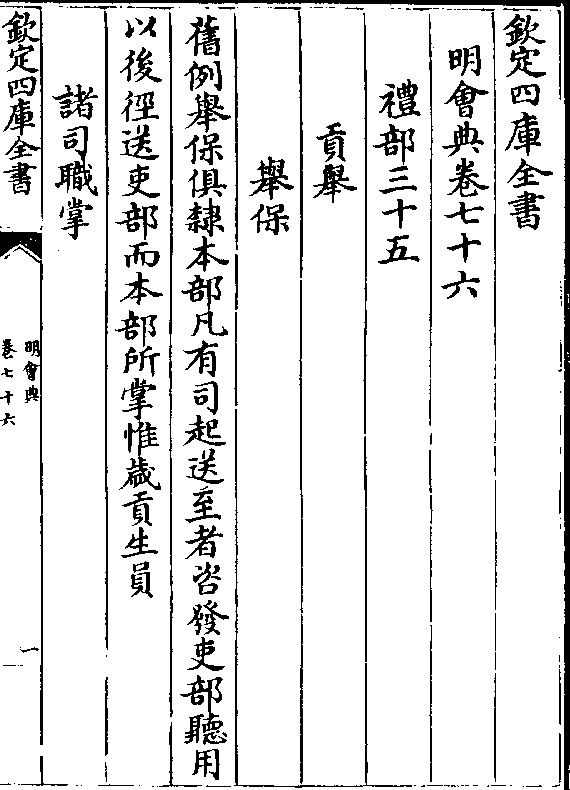 欽定四庫全書
明會典卷七十六
禮部三十五
貢舉
舉保
舊例舉保俱隸本部凡有司起送至者咨發吏部聽用
以後徑送吏部而本部所掌惟歲貢生員
諸司職掌
欽定四庫全書
明會典
卷七十六
一